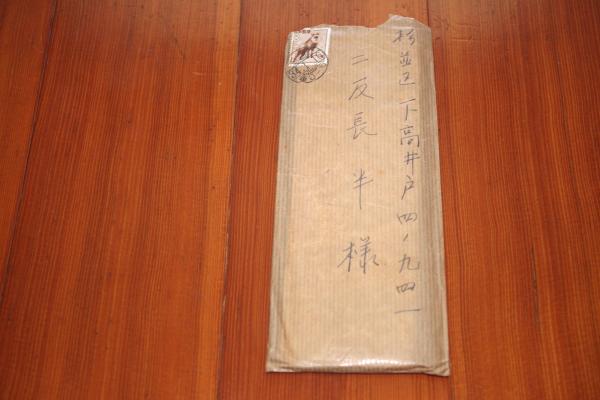 杉並区下高井戸四ノ九四一
二反長半様